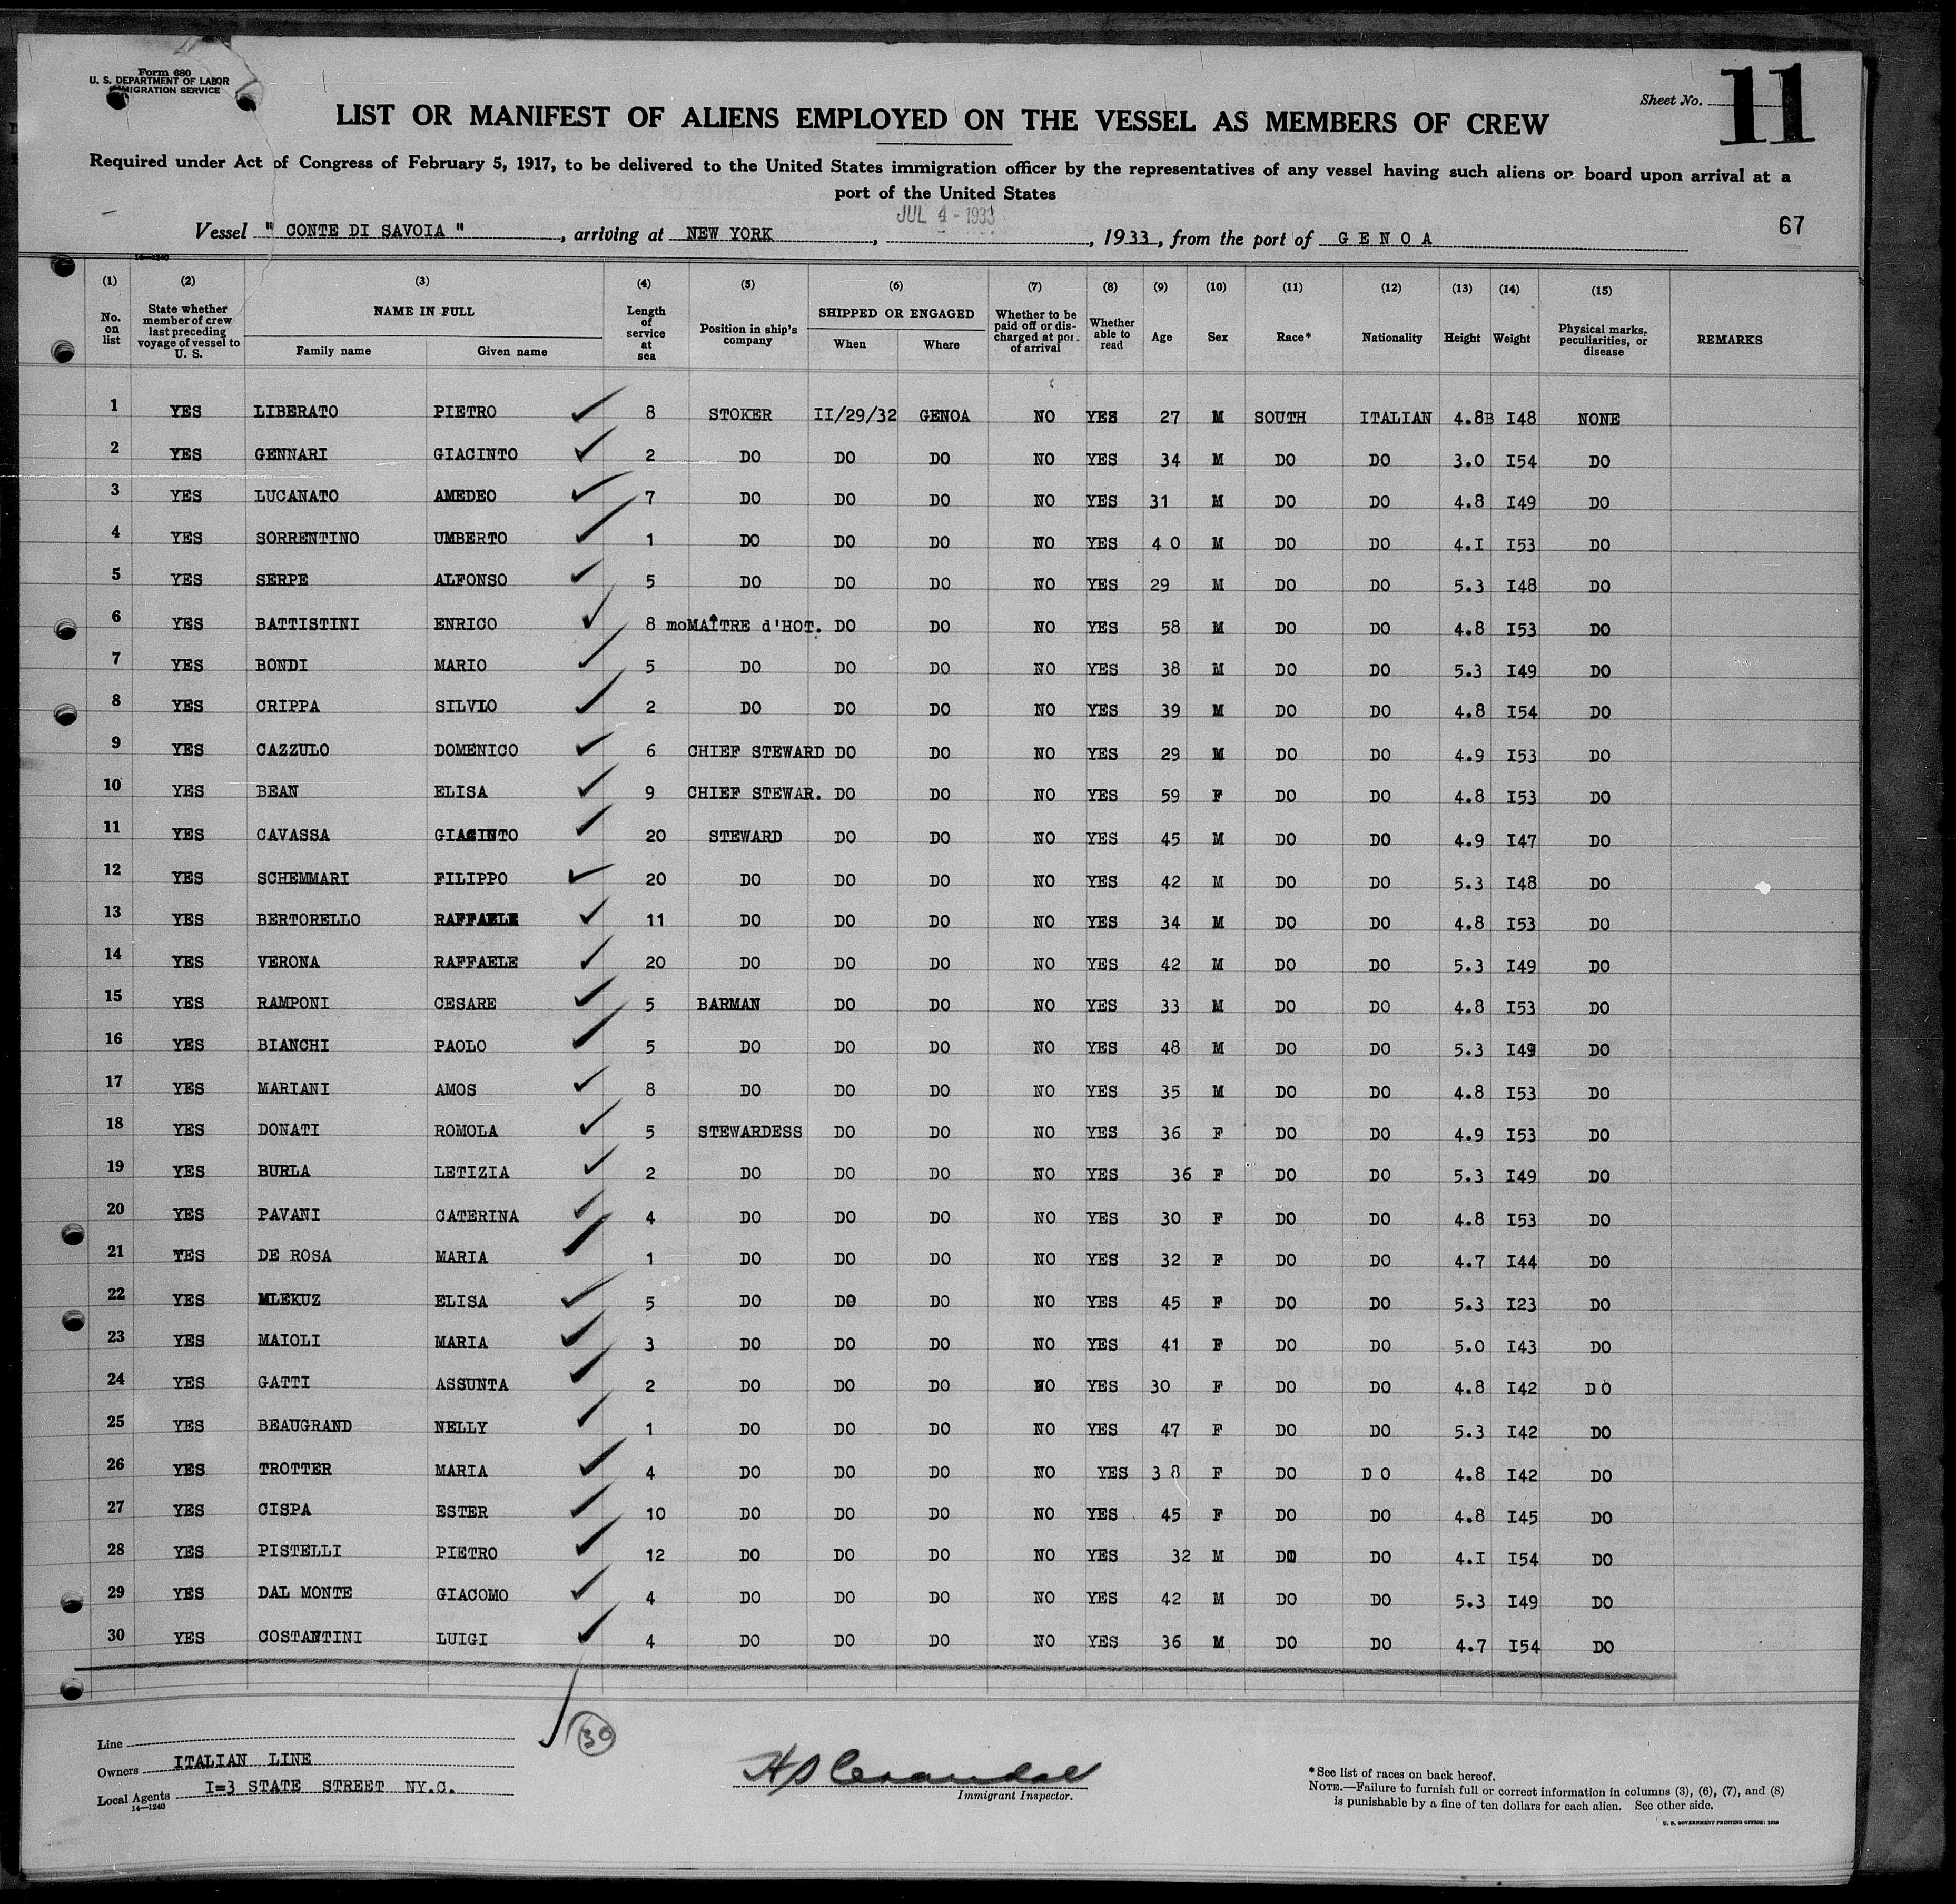 Form 680
U. S. DEPARTMENT OF LABOR
IMMIGRATION SERVICE
Sheet No. 11
LIST OR MANIFEST OF ALIENS EMPLOYED ON THE VESSEL AS MEMBERS OF CREW
Required under Act of Congress of February 5, 1917, to be delivered to the United States immigration officer by the representatives of any vessel having such aliens on board upon arrival at a
port of the United States
JUL 4 - 1933
67
Vessel " CONTE DI SAVOIA ", arriving at NEW YORK, , 1933, from the port of GENOA
14—1240
(1) (2) (3) (4) (5) (6) (7) (8) (9) (10) (11) (12) (13) (14) (15)
No. on list State whether member of crew last preceding voyage of vessel to U. S. NAME IN FULL Family name Given name Length of service at sea Position in ship's company SHIPPED OR ENGAGED When Where Whether to be paid off or discharged at port of arrival Whether able to read Age Sex Race* Nationality Height Weight Physical marks, peculiarities, or disease REMARKS
1 YES LIBERATO PIETRO 8 STOKER II/29/32 GENOA NO YES 27 M SOUTH ITALIAN 4.8B I48 NONE
2 YES GENNARI GIACINTO 2 DO DO DO NO YES 34 M DO DO 3.0 I54 DO
3 YES LUCANATO AMEDEO 7 DO DO DO NO YES 31 M DO DO 4.8 I49 DO
4 YES SORRENTINO UMBERTO 1 DO DO DO NO YES 40 M DO DO 4.I I53 DO
5 YES SERPE ALFONSO 5 DO DO DO NO YES 29 M DO DO 5.3 I48 DO
6 YES BATTISTINI ENRICO 8 mo MAÎTRE d'HOT. DO DO NO YES 58 M DO DO 4.8 I53 DO
7 YES BONDI MARIO 5 DO DO DO NO YES 38 M DO DO 5.3 I49 DO
8 YES CRIPPA SILVIO 2 DO DO DO NO YES 39 M DO DO 4.8 I54 DO
9 YES CAZZULO DOMENICO 6 CHIEF STEWARD DO DO NO YES 29 M DO DO 4.9 I53 DO
10 YES BEAN ELISA 9 CHIEF STEWAR. DO DO NO YES 59 F DO DO 4.8 I53 DO
11 YES CAVASSA GIACINTO 20 STEWARD DO DO NO YES 45 M DO DO 4.9 I47 DO
12 YES SCHEMMARI FILIPPO 20 DO DO DO NO YES 42 M DO DO 5.3 I48 DO
13 YES BERTORELLO RAFFAELE 11 DO DO DO NO YES 34 M DO DO 4.8 I53 DO
14 YES VERONA RAFFAELE 20 DO DO DO NO YES 42 M DO DO 5.3 I49 DO
15 YES RAMPONI CESARE 5 BARMAN DO DO NO YES 33 M DO DO 4.8 I53 DO
16 YES BIANCHI PAOLO 5 DO DO DO NO YES 48 M DO DO 5.3 I49 DO
17 YES MARIANI AMOS 8 DO DO DO NO YES 35 M DO DO 4.8 I53 DO
18 YES DONATI ROMOLA 5 STEWARDESS DO DO NO YES 36 F DO DO 4.9 I53 DO
19 YES BURLA LETIZIA 2 DO DO DO NO YES 36 F DO DO 5.3 I49 DO
20 YES PAVANI CATERINA 4 DO DO DO NO YES 30 F DO DO 4.8 I53 DO
21 YES DE ROSA MARIA 1 DO DO DO NO YES 32 F DO DO 4.7 I44 DO
22 YES MLEKUZ ELISA 5 DO DO DO NO YES 45 F DO DO 5.3 I23 DO
23 YES MAIOLI MARIA 3 DO DO DO NO YES 41 F DO DO 5.0 I43 DO
24 YES GATTI ASSUNTA 2 DO DO DO NO YES 30 F DO DO 4.8 I42 DO
25 YES BEAUGRAND NELLY 1 DO DO DO NO YES 47 F DO DO 5.3 I42 DO
26 YES TROTTER MARIA 4 DO DO DO NO YES 38 F DO DO 4.8 I42 DO
27 YES CISPA ESTER 10 DO DO DO NO YES 45 F DO DO 4.8 I45 DO
28 YES PISTELLI PIETRO 12 DO DO DO NO YES 32 M DO DO 4.I I54 DO
29 YES DAL MONTE GIACOMO 4 DO DO DO NO YES 42 M DO DO 5.3 I49 DO
30 YES COSTANTINI LUIGI 4 DO DO DO NO YES 36 M DO DO 4.7 I54 DO
30
Line
Owners ITALIAN LINE
Local Agents I=3 STATE STREET NY.C.
14—1240
H S Crandall
Immigrant Inspector.
*See list of races on back hereof.
NOTE.—Failure to furnish full or correct information in columns (3), (6), (7), and (8)
is punishable by a fine of ten dollars for each alien. See other side.
U. S. GOVERNMENT PRINTING OFFICE: